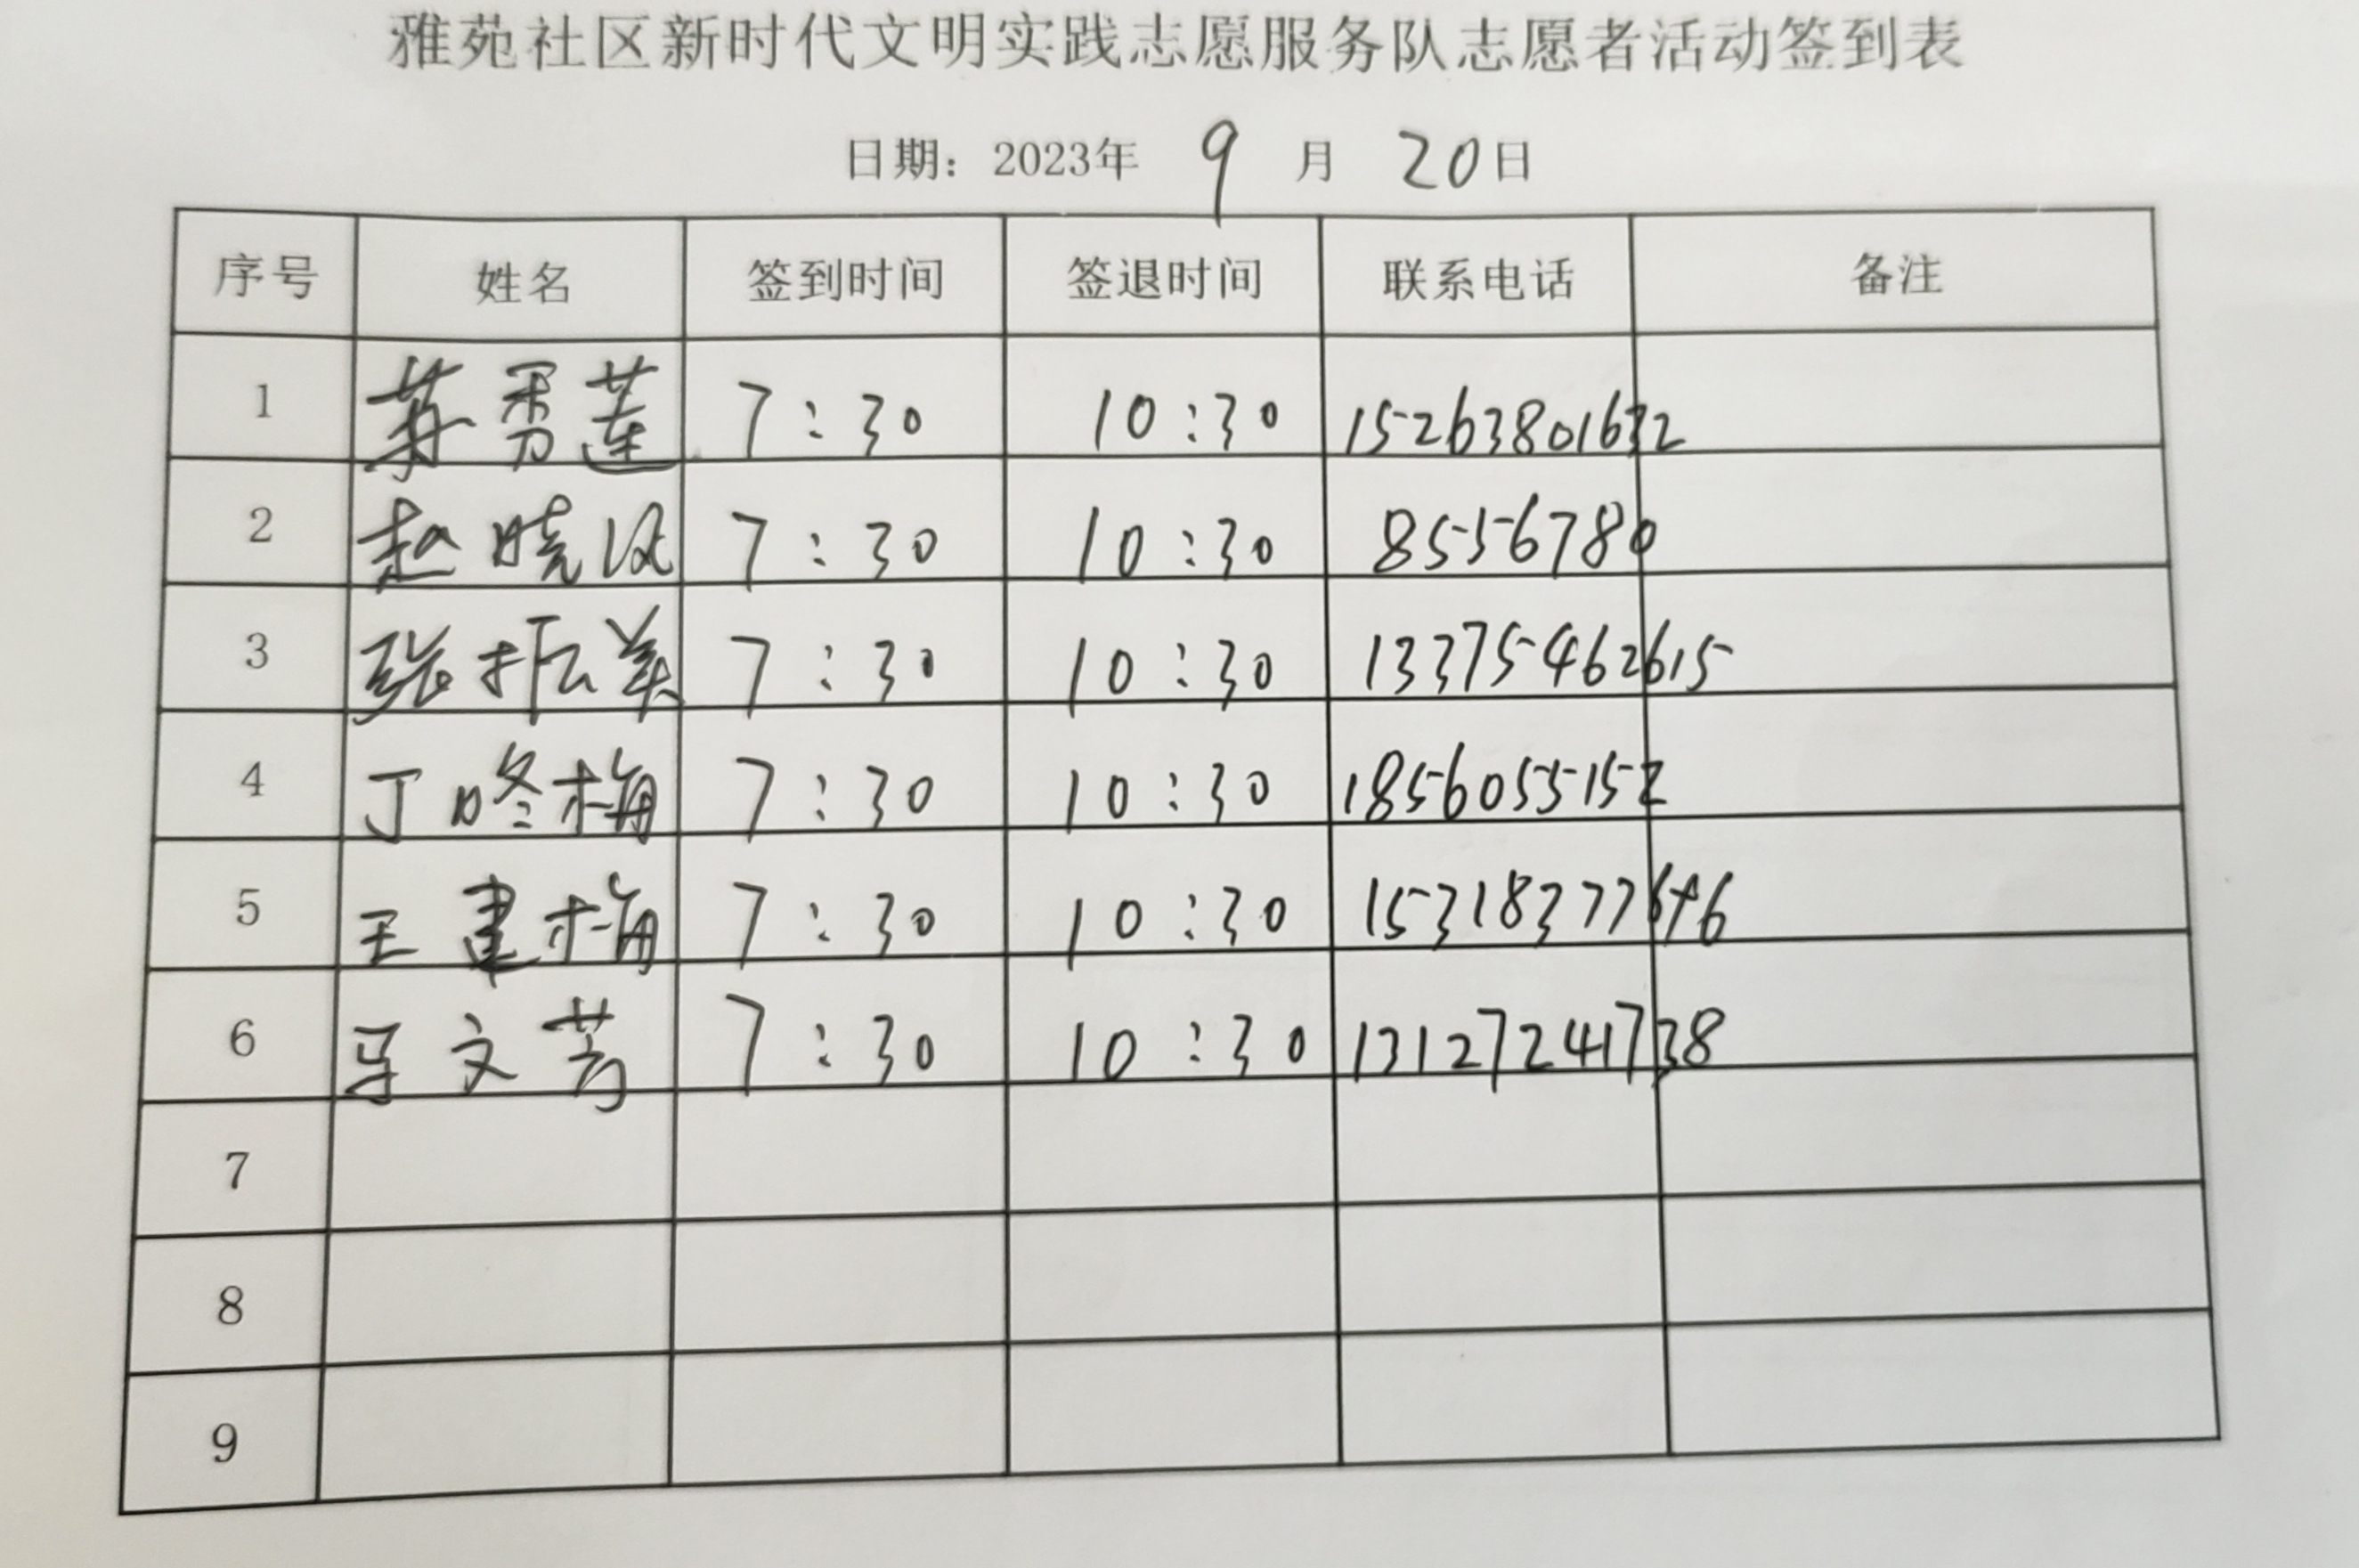 雅苑社区新时代文明实践志愿服务队志愿者活动签到表
日期：2023年 9 月 20日
序号 姓名 签到时间 签退时间 联系电话 备注
1 秀莲 7:30 10:30 15263801632
2 赵晓 7:30 10:30 8556780
3 张振美 7:30 10:30 13375462615
4 丁咚梅 7:30 10:30 1856055152
5 王建梅 7:30 10:30 15318377646
6 马文芳 7:30 10:30 13127241738
7
8
9